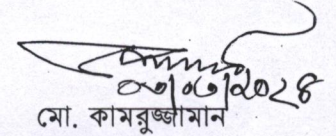 ০৩/০৩/২০২৪
মো. কামরুজ্জামান